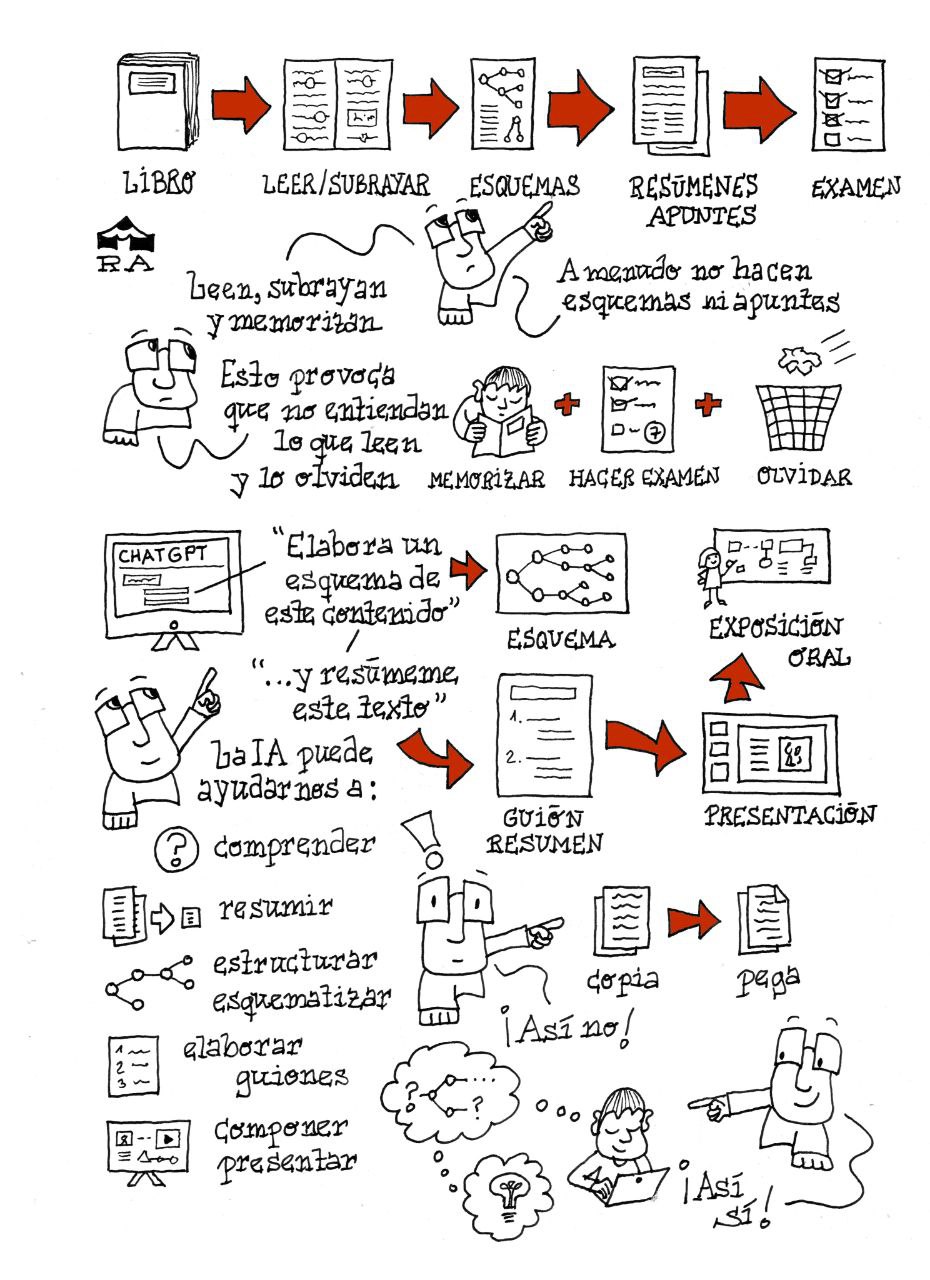 LIBRO
LEER/SUBRAYAR
ESQUEMAS
RESÚMENES
APUNTES
EXAMEN
RA
Leen, subrayan
y memorizan
A menudo no hacen
esquemas ni apuntes
Esto provoca
que no entiendan
lo que leen
y lo olviden
7
MEMORIZAR
HACER EXAMEN
OLVIDAR
CHATGPT
"Elabora un
esquema de
este contenido"
ESQUEMA
EXPOSICIÓN
ORAL
"...y resúmeme
este texto"
1.
2.
La IA puede
ayudarnos a:
GUIÓN
RESUMEN
PRESENTACIÓN
?
comprender
!
resumir
estructurar
esquematizar
copia
pega
¡Así no!
1
2
3
elaborar
guiones
? ....
?
componer
presentar
¡Así
sí!